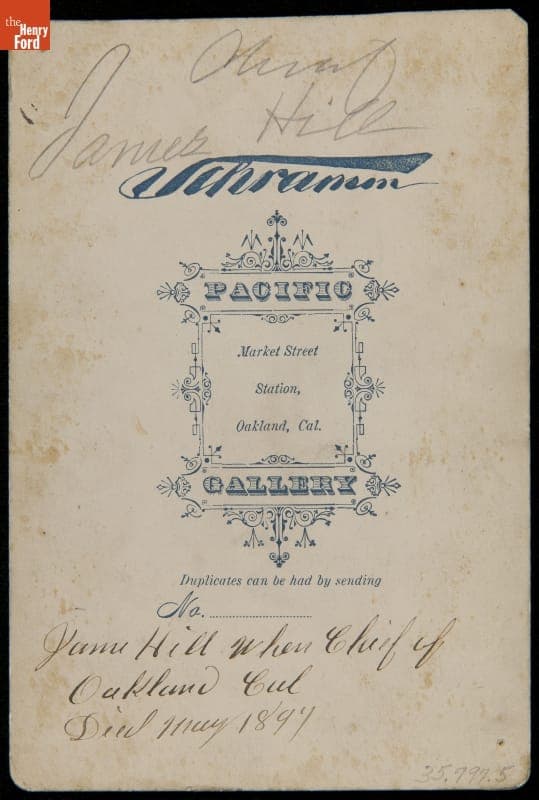 the
Henry
Ford
James Hill
Schramm
PACIFIC
Market Street
Station,
Oakland, Cal.
GALLERY
Duplicates can be had by sending
No.
Hill when Chief of
Oakland Cal
Died May 1897
35.797.5